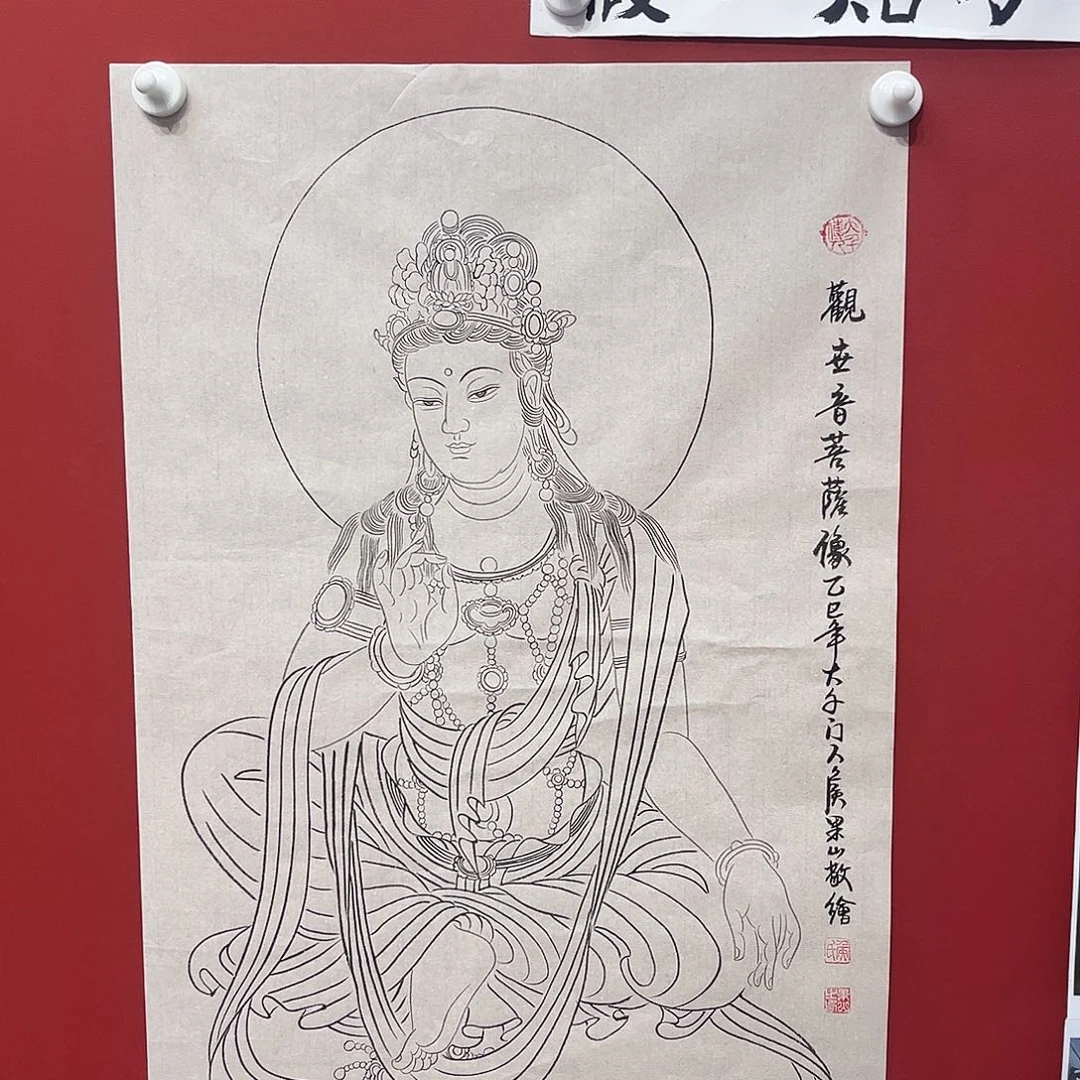 觀世音菩薩像乙巳年大千门人侯果山敬繪